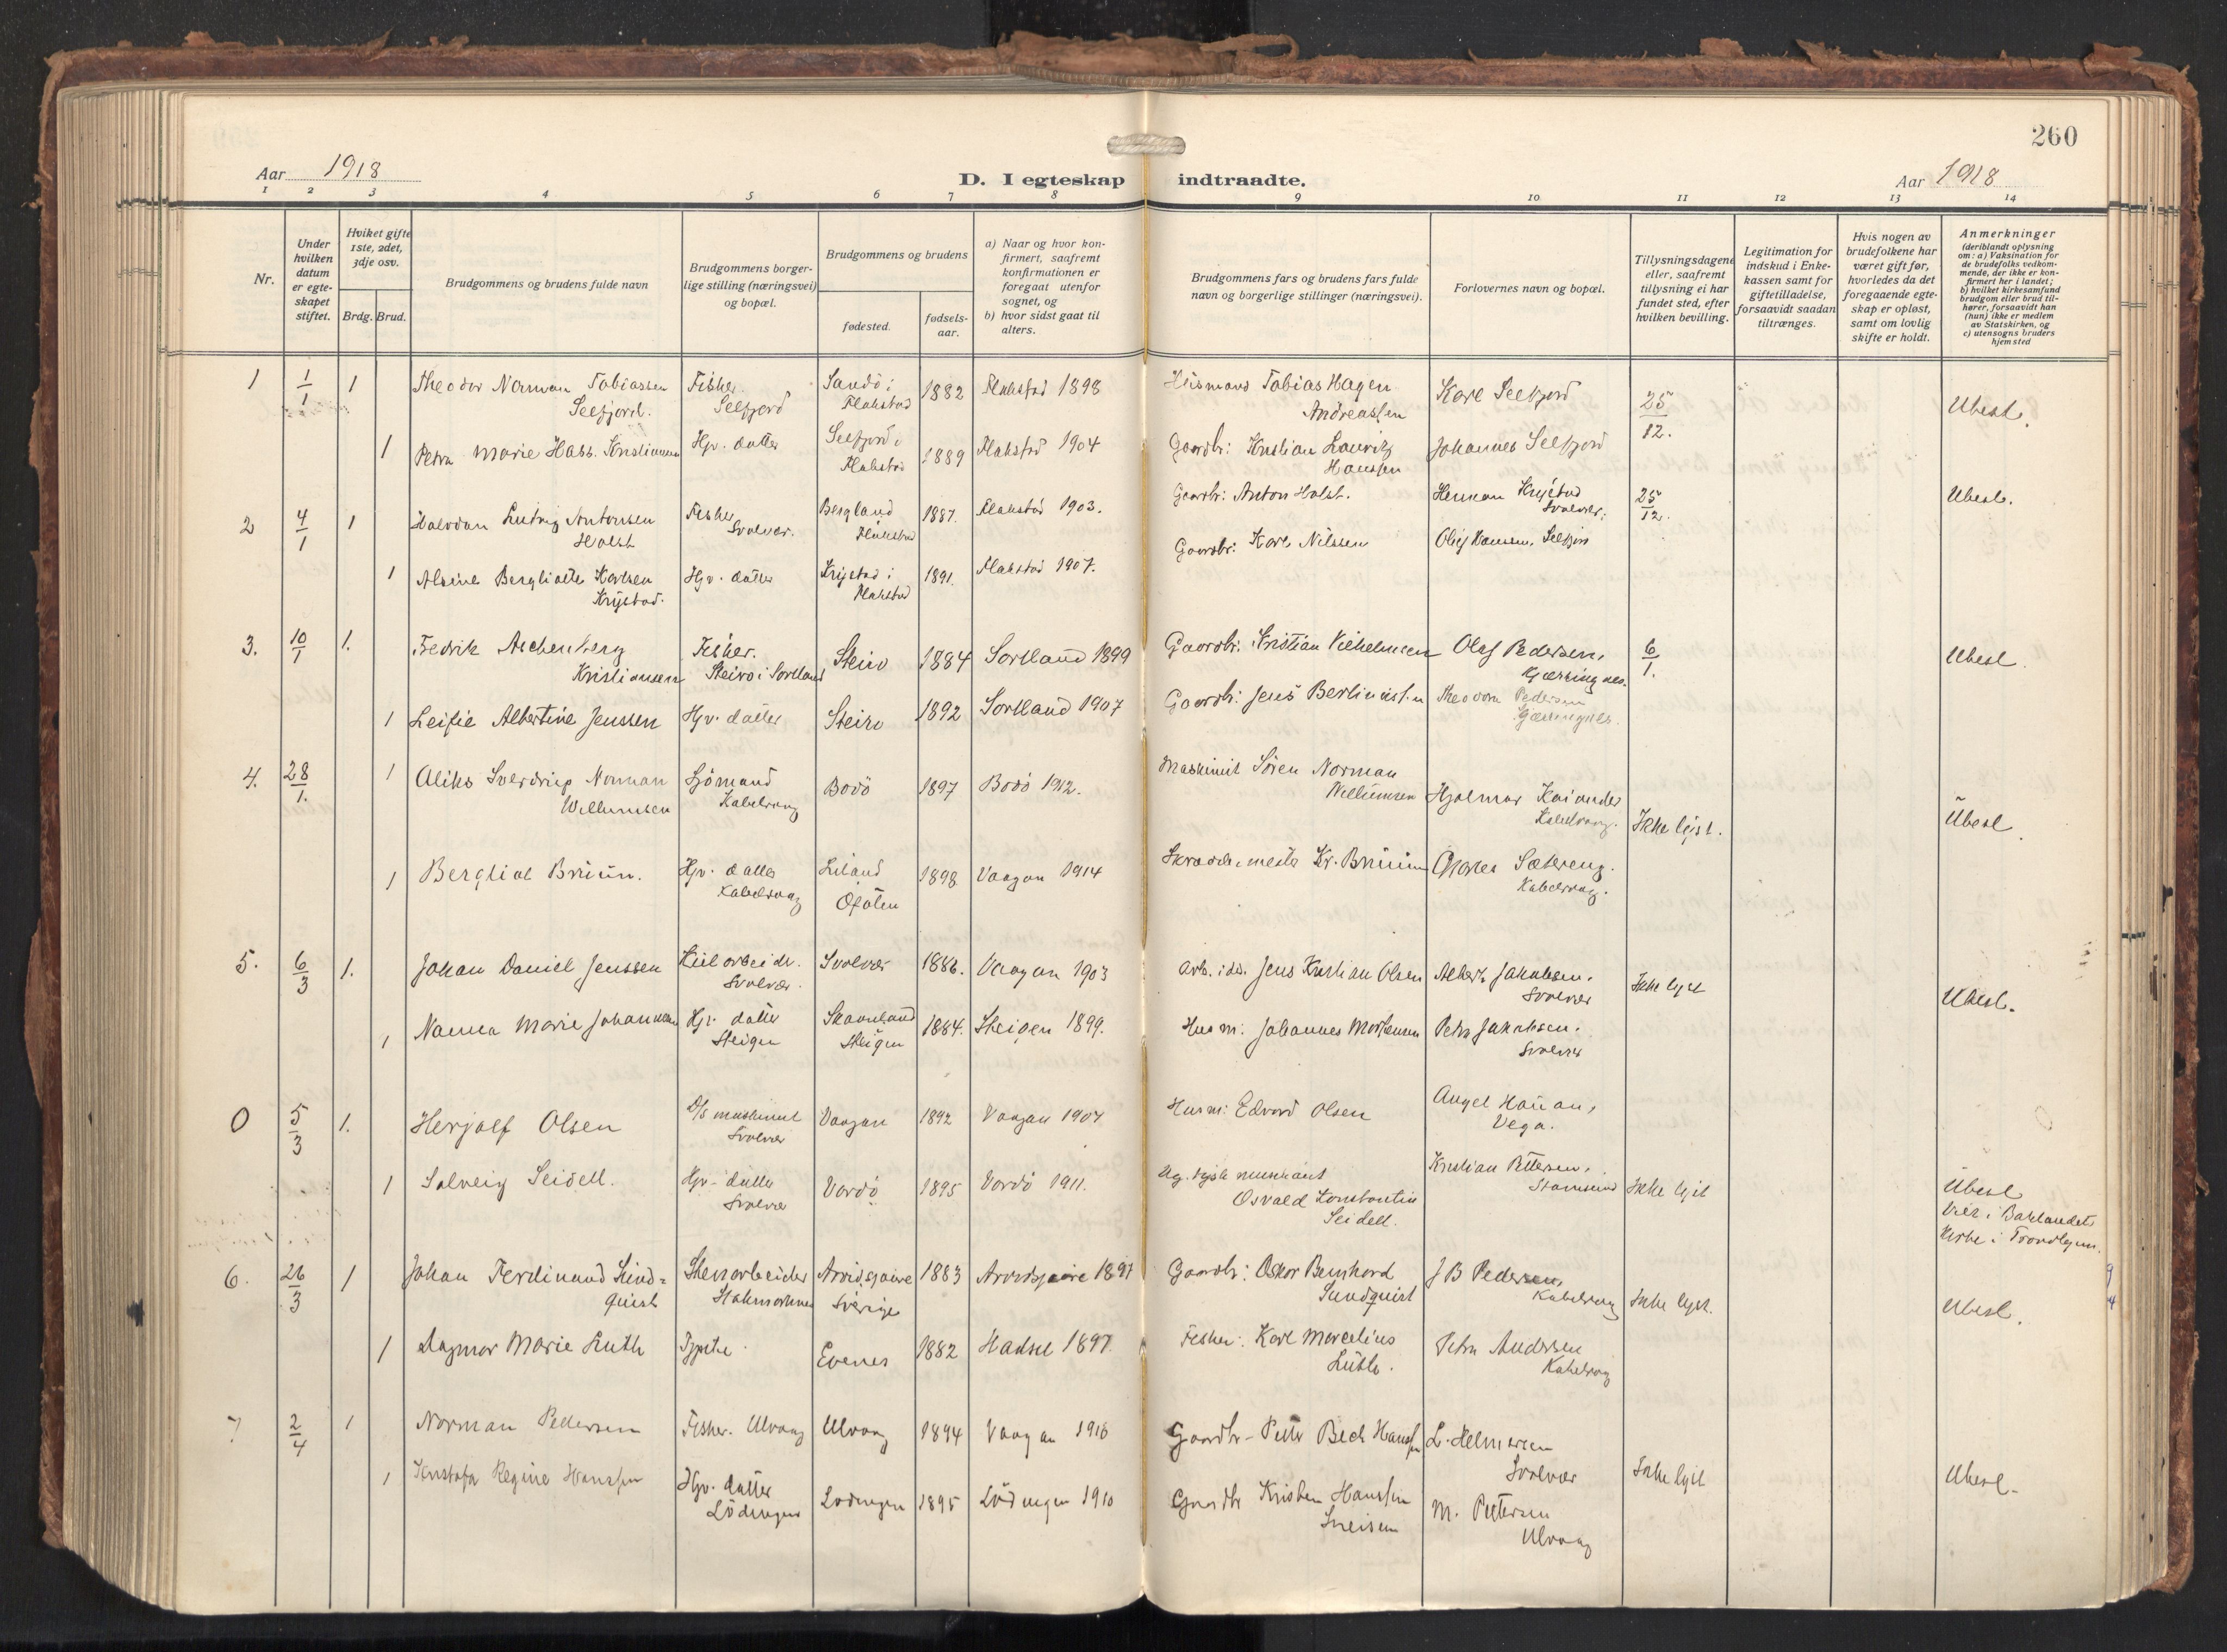 260
Aar 1918
D. I egteskap indtraadte.
Aar 1918
1 2 3 4 5 6 7 8 9 10 11 12 13 14
Nr.
Under hvilken datum er egteskapet stiftet.
Hviket gifte 1ste, 2det, 3dje osv.
Brdg. Brud.
Brudgommens og brudens fulde navn
Brudgommens borgerlige stilling (næringsvei) og bopæl.
Brudgommens og brudens
fødested.
fødselsaar.
a) Naar og hvor konfirmert, saafremt konfirmationen er foregaat utenfor sognet, og
b) hvor sidst gaat til alters.
Brudgommens fars og brudens fars fulde navn og borgerlige stillinger (næringsvei).
Forlovernes navn og bopæl.
Tillysningsdagene eller, saafremt tillysning ei har fundet sted, efter hvilken bevilling.
Legitimation for indskud i Enkekassen samt for giftetilladelse, forsaavidt saadan tiltrænges.
Hvis nogen av brudefolkene har været gift før, hvorledes da det foregaaende egteskap er opløst, samt om lovlig skifte er holdt.
Anmerkninger
(deriblandt oplysning om: a) Vaksination for de brudefolks vedkommende, der ikke er konfirmert her i landet;
b) hvilket kirkesamfund brudgom eller brud tilhører, forsaavidt han (hun) ikke er medlem av Statskirken, og
c) utensogns bruders hjemsted
1 1/1 1 Theodor Norman Tobiassen Fisker. Sandö i 1882 Flakstad 1898 Tobias Hagen Karl Selfjord 25/12. Ubesl.
Selfjord. Selfjord Flakstad Andreassen
1 Petra Marie Hass. Kristiansen Hjv. datter Selfjord i 1889 Flakstad 1904 Gaardbr: Kristian Lauritz Johannes Selfjord
Flakstad Hanssen
2 4/1 1 Halvdan Ludvig Antonsen Fisker Bergland 1887. Flakstad 1903. Gaardbr: Anton Holst. Herman Krystad 25/12. Ubesl.
Holst Svolvær. Flakstad Svolvær.
1 Alvine Bergliotte Karlsen Hjv. datter Krystad i 1891. Flakstad 1907. Gaardbr: Karl Nilssen Oluf Hansen, Selfjord
Krystad. Flakstad
3. 10/1 1. Fredrik Aschenberg Fisker. Steiro 1884 Sortland 1899 Gaardbr: Kristian Vilhelmsen Olaf Pedersen, 6/1. Ubesl.
Kristiansen Steiro i Sortland Gjærsingnes.
1 Leifie Albertine Jenssen Hjv. datter Steiro 1892 Sortland 1907 Gaardbr: Jens Berliussen Theodora Pedersen
4. 28/1. 1 Aliks Sverdrup Norman Sjömand Bodö 1897 Bodö 1912. Maskinist Sören Norman Hjalmar Kaiander Ikke lyst. Ubesl.
Willumsen Kabelvaag Willumsen Kabelvaag.
1 Bergliot Bruun. Hjv. datter Liland 1898 Vaagan 1914 Skræddermester Kr. Bruun Charles Sætereng.
Kabelvaag Ofoten Kabelvaag.
5. 6/3 1. Johan Daniel Jenssen Svolvær 1886. Vaagan 1903 Jens Kristian Olsen Albert Jakobsen. Ikke lyst Ubesl.
Svolvær. Svolvær
1 Nanna Marie Johannesen Hjv. datter Skaanland 1884. Steigen 1899. Husm: Johannes Mortensen Petra Jakobsen.
Steigen Steigen Svolvær
0 5/3 1. Herjolf Olsen D/s maskinist Vaagan 1892 Vaagan 1907 Husm: Edvard Olsen Angel Hanan,
Svolvær Vega.
1 Solveig Seidell. Hjv. datter Vardö 1895 Vardö 1911. Osvald Konstantin Kristian Pettersen, Ikke lyst Ubesl
Svolvær Seidell. Stamsund Viet i Baklandets
Kirke i Trondhjem.
6. 26/3 1 Johan Ferdinand Lind= Stenarbeider Arvidsjaure 1883 Arvidsjaure 1897 Gaardbr: Oskar Bernhard J B Pedersen, Ikke lyst. Ubesl.
quist Stokmarknes Sverige Lundquist Kabelvaag
1 Dagmar Marie Luth Evenes 1882 Hadsel 1897. Fisker: Karl Marcelius Petra Andersen
Luth. Kabelvaag
7 2/4 1 Norman Pedersen Fisker. Ulvaag Ulvaag 1894 Vaagan 1910 Gaardbr- Petter Bech Hanssen L. Helmersen Ikke lyst Ubesl-
Svolvær
1 Kristofa Regine Hanssen Hjv. datter Lödingen 1895 Lödingen 1910 Gaardbr Kristen Hanssen M. Pettersen
Lödingen Ulvaag